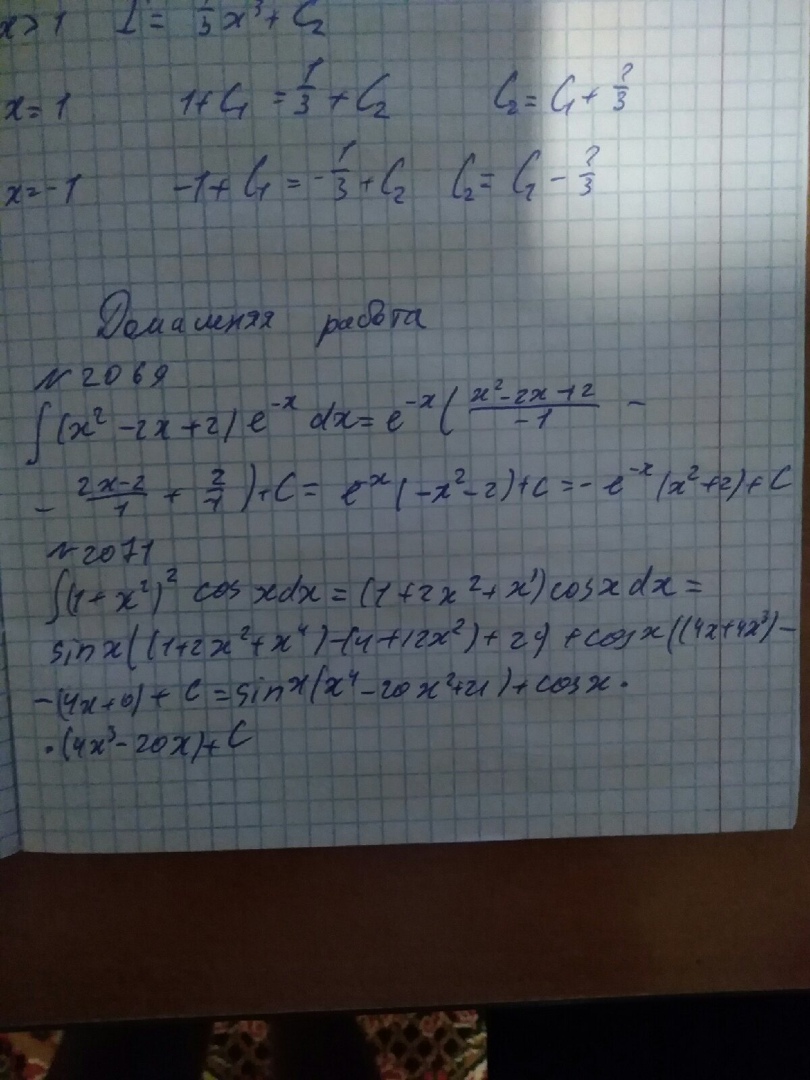 x>1 I = 1/3 x³ + C₂
x=1 1+C₁ = 1/3 + C₂ C₂ = C₁ + 2/3
x=-1 -1+C₁ = -1/3 + C₂ C₂ = C₁ - 2/3
Домашняя работа
№2069
∫(x² -2x+2) e^{-x} dx = e^{-x} ( (x²-2x+2)/(-1) -
- (2x-2)/1 + 2/(-1) ) + C = e^{x} (-x²-2)+C = - e^{-x} (x²+2) + C
№2071
∫(1+x²)² cos x dx = (1+2x²+x⁴) cos x dx =
sin x ((1+2x²+x⁴)-(4+12x²)+24) + cos x ((4x+4x³)-
-(4x+0) + C = sin x (x⁴-20x²+21) + cos x ·
·(4x³-20x)+C